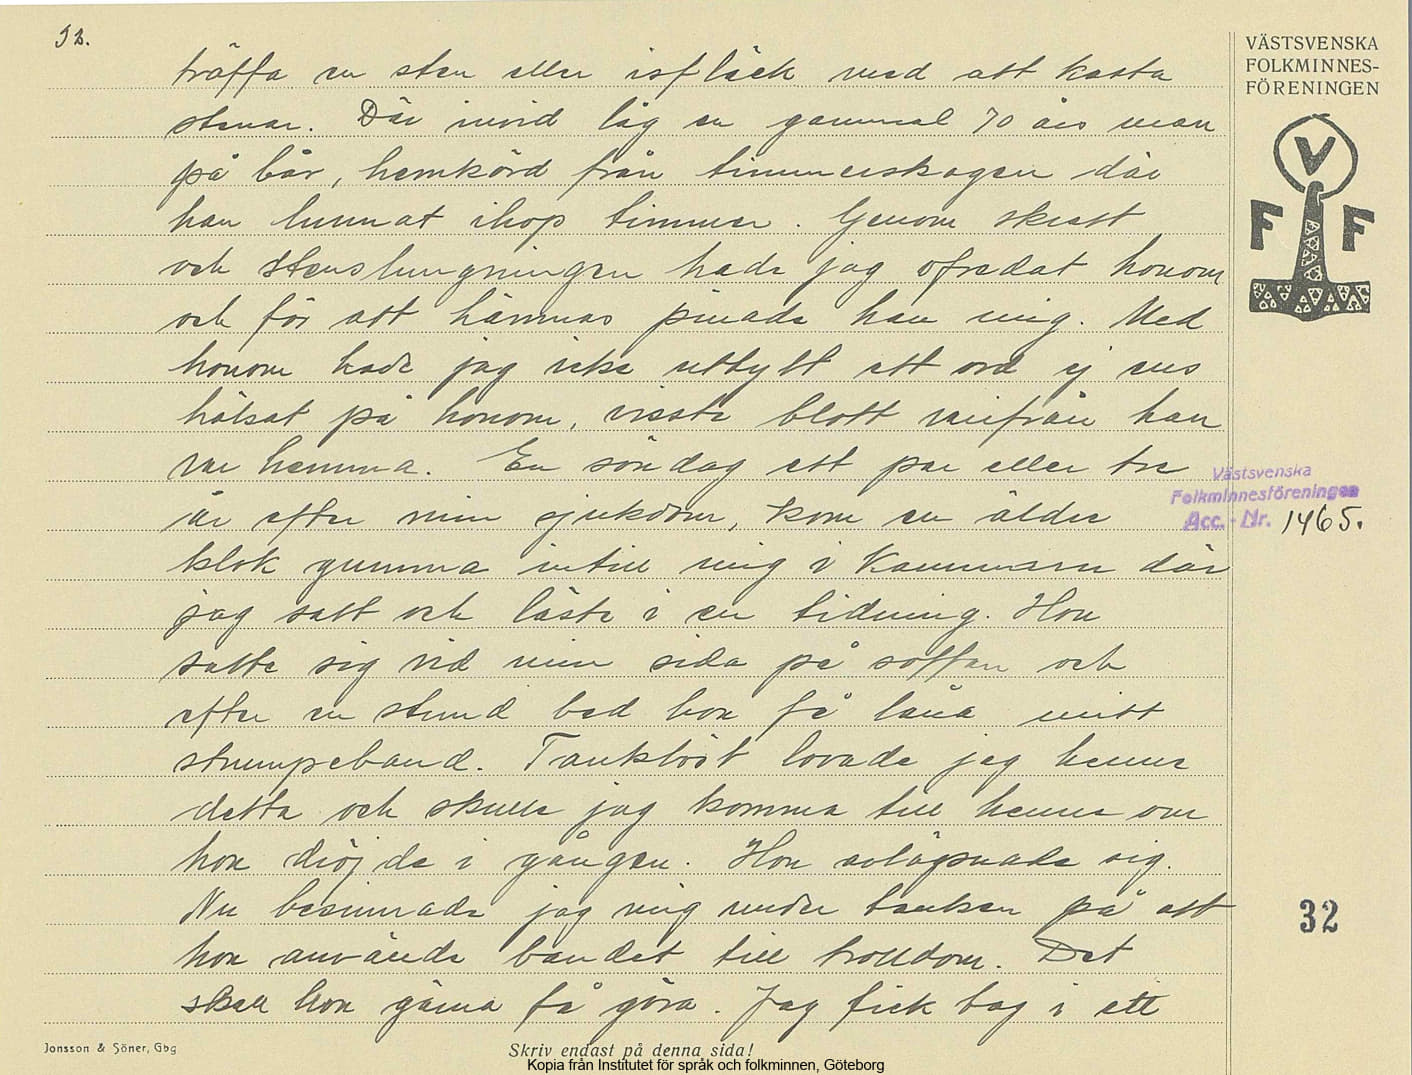 32.
träffa en sten eller isfläck med att kasta
stenar. Där invid låg en gammal 70 års man
på bår, hemkörd från timmerskogen där
han hunnat ihop timmer. Genom skratt
och stenslungningen hade jag ofredat honom
och för att hämnas pinade han mig. Med
honom hade jag icke utbytt ett ord ej ens
hälsat på honom, visste blott varifrån han
var hemma. En söndag ett par eller tre
år efter min sjukdom, kom en äldre
klok gumma intill mig i kammaren där
jag satt och läste i en tidning. Hon
satte sig vid min sida på soffan och
efter en stund bad hon få låna mitt
strumpeband. Tanklöst lovade jag henne
detta och skulle jag komma till henne om
hon dröjde i gången. Hon avlägsnade sig.
Nu besinnade jag mig under tanken på att
hon använde bandet till trolldom. Det
skall hon gärna få göra. Jag fick tag i ett
VÄSTSVENSKA
FOLKMINNES-
FÖRENINGEN
V
F F
Västsvenska
Folkminnesföreningen
Acc.-Nr. 1465.
32
Jonsson & Söner, Gbg
Skriv endast på denna sida!
Kopia från Institutet för språk och folkminnen, Göteborg